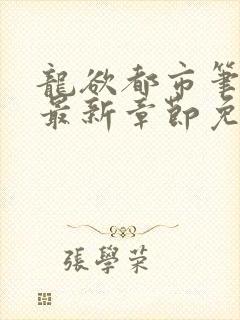 龍欲都市筆
最新章節免
張學荣